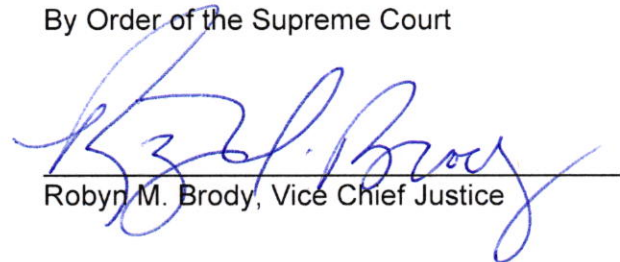 By Order of the Supreme Court
Robyn M. Brody, Vice Chief Justice